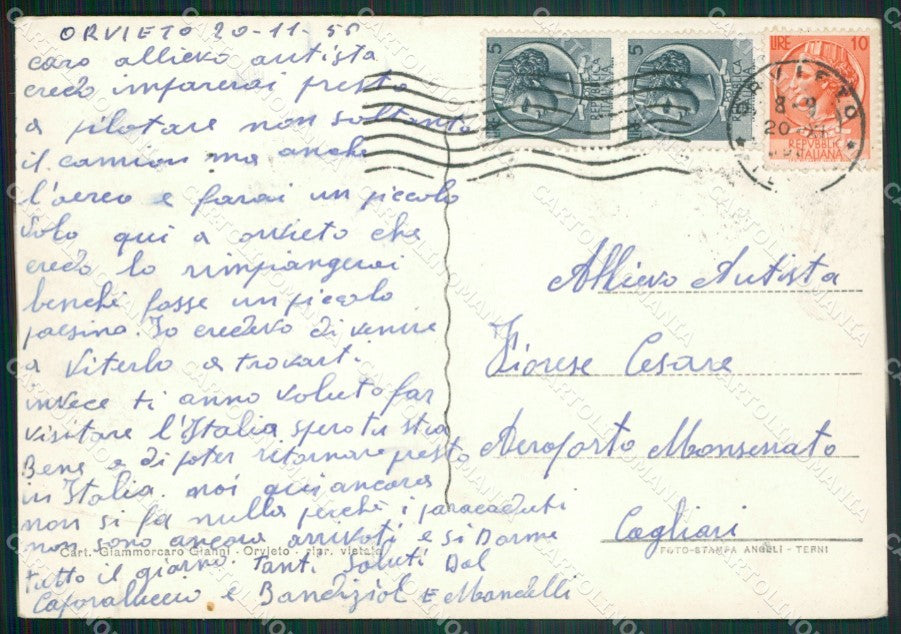 ORVIETO 20-11-55
caro allievo autista
credo imparerai presto
a pilotare non soltanto
il camion ma anche
l'aereo e farai un piccolo
volo qui a orvieto che
credo lo rimpiangerai
benchè fosse un piccolo
paesino. Io credevo di venire
a Viterbo a trovarti.
invece ti anno voluto far
visitare l'Italia spero tu stia
Bene e di poter ritornare presto
in Italia. noi qui ancora
non si fa nulla perchè i paracaduti
non sono ancora arrivati e si Dorme
tutto il giorno. Tanti Saluti Dal
Caporaluccio e Bandiziol E Mandelli
Cart. Giammorcaro Gianni - Orvieto - ripr. vietata
LIRE 5
REPVBBLICA ITALIANA
LIRE 5
REPVBBLICA ITALIANA
LIRE 10
REPVBBLICA ITALIANA
ORVIETO
8-9
20 XI
Allievo Autista
Fiorese Cesare
Aeroporto Monserrato
Cagliari
FOTO-STAMPA ANGELI - TERNI
CARTOLINOMANIA